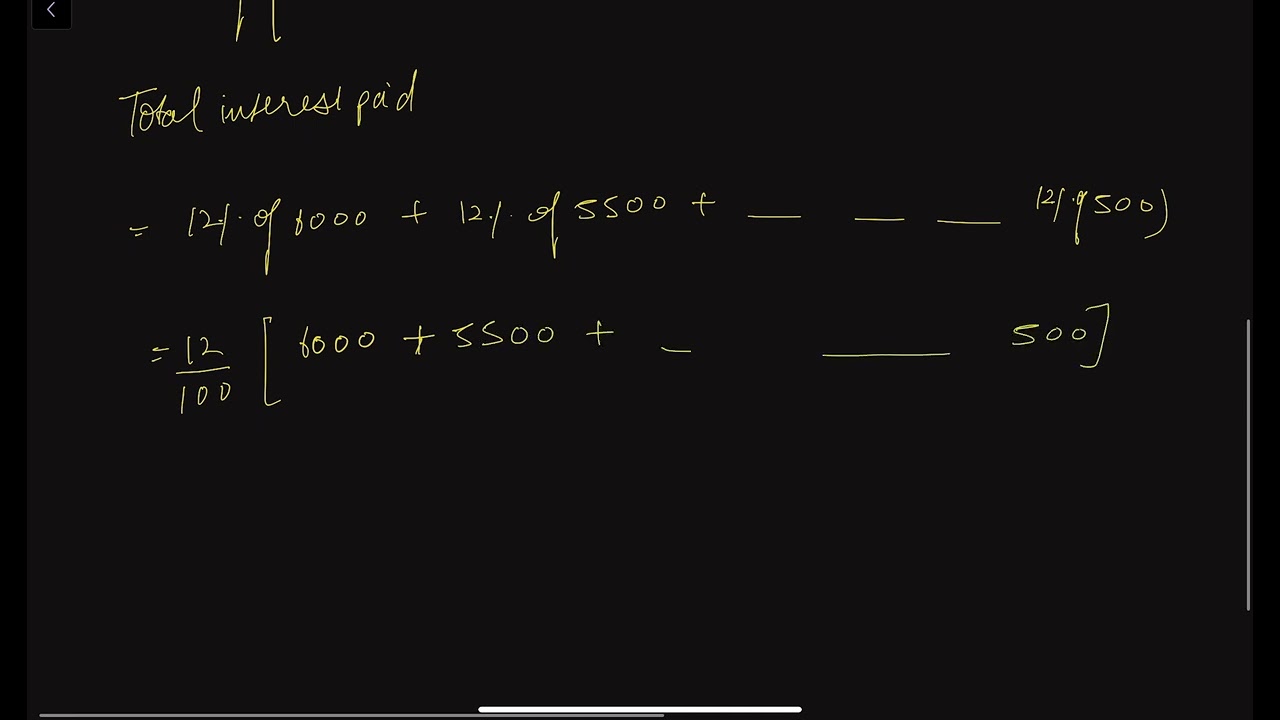 Total interest paid
= 12% of 6000 + 12% of 5500 + — — — 12% of 500)
= 12/100 [6000 + 5500 + — — 500]